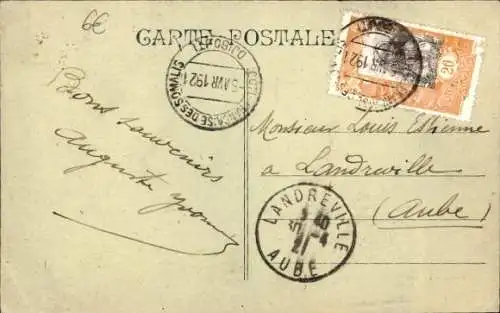 6€
CARTE POSTALE
DJIBOUTI
AVR 1921
COTE FRANÇAISE DES SOMALIS
20
Bons souvenirs
Auguste
Monsieur Louis Estienne
a Landreville
(Aube)
LANDREVILLE
30 - 4
21
AUBE